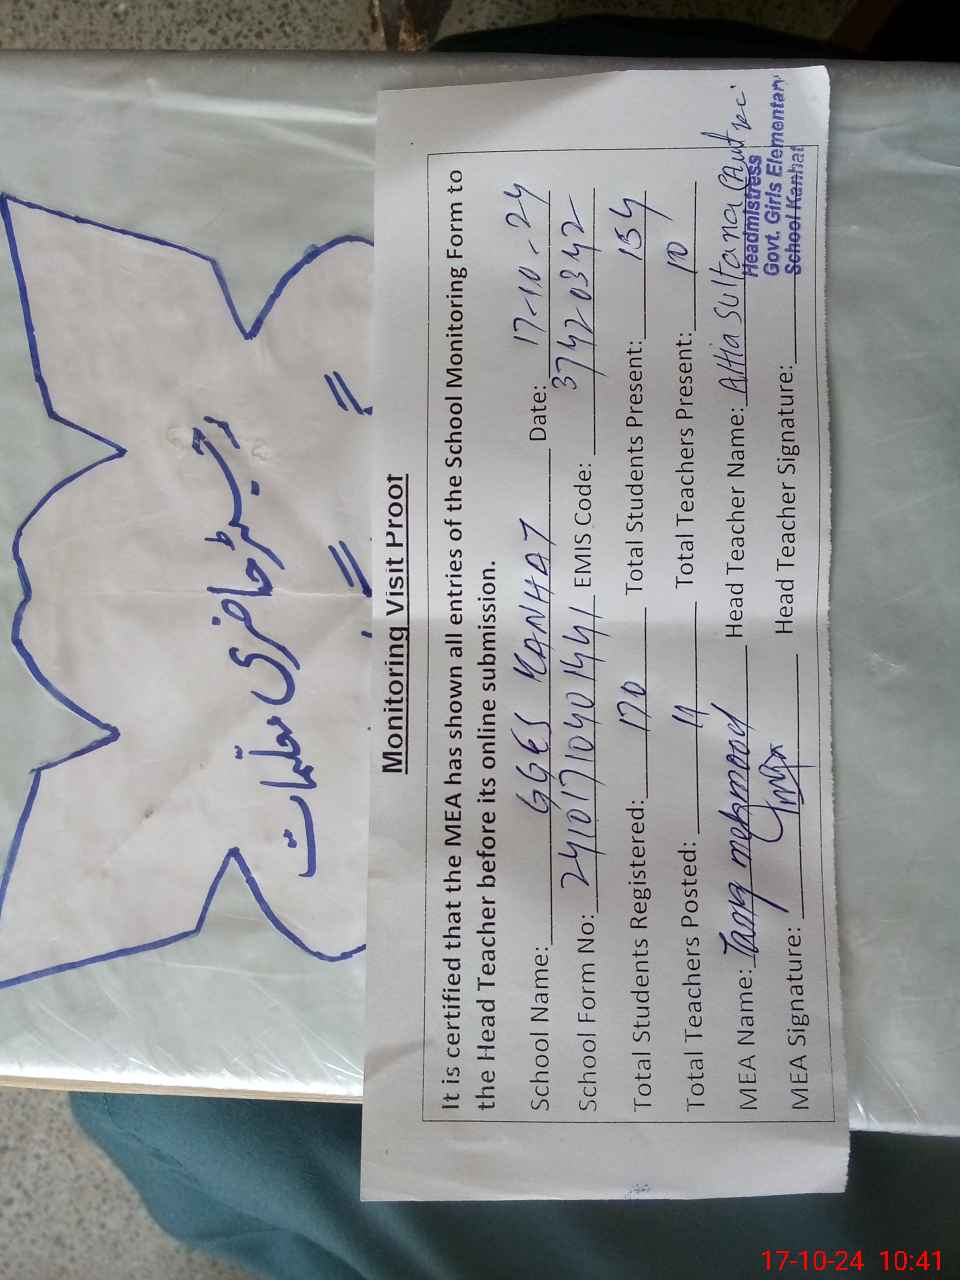 رجسٹر حاضری معلمات
Monitoring Visit Proof
It is certified that the MEA has shown all entries of the School Monitoring Form to
the Head Teacher before its online submission.
School Name: GGES KANHAT Date: 17-10-24
School Form No: 24101710401441 EMIS Code: 37420342
Total Students Registered: 170 Total Students Present: 154
Total Teachers Posted: 11 Total Teachers Present: 10
MEA Name: Tariq mehmood Head Teacher Name: Attia Sultana
MEA Signature: Head Teacher Signature:
Headmistress
Govt. Girls Elementary
School Kanhat
17-10-24 10:41